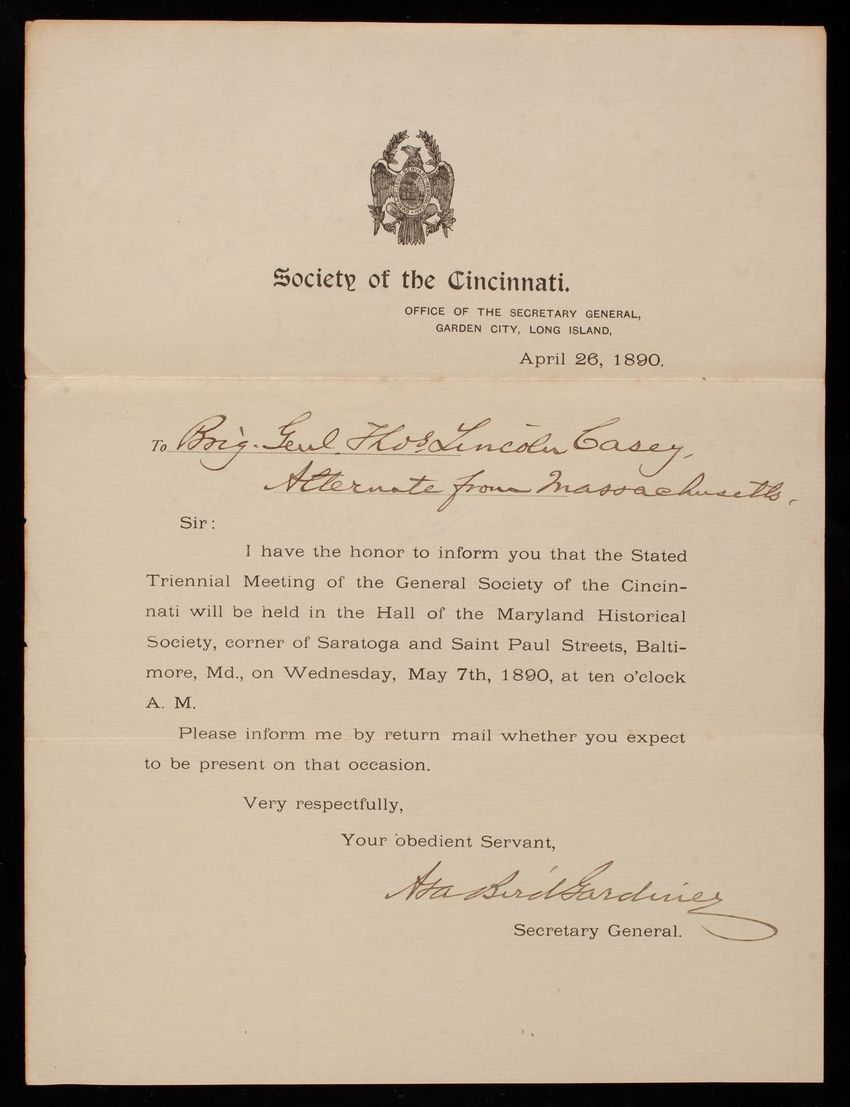 Society of the Cincinnati.
OFFICE OF THE SECRETARY GENERAL,
GARDEN CITY, LONG ISLAND,
April 26, 1890.
To Brig. Genl. Thos Lincoln Casey,
Alternate from Massachusetts,
Sir:
I have the honor to inform you that the Stated
Triennial Meeting of the General Society of the Cincin-
nati will be held in the Hall of the Maryland Historical
Society, corner of Saratoga and Saint Paul Streets, Balti-
more, Md., on Wednesday, May 7th, 1890, at ten o'clock
A. M.
Please inform me by return mail whether you expect
to be present on that occasion.
Very respectfully,
Your obedient Servant,
Asa Bird Gardiner
Secretary General.